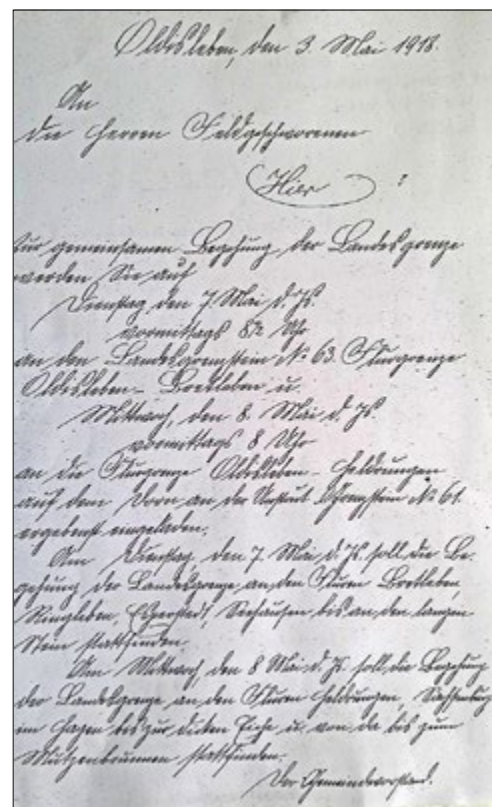 Oldisleben, den 3. Mai 1918.
An
die Herren Feldgeschworenen
Hier
Zur gemeinsamen Begehung der Landesgrenze
werden Sie auf
Dienstag den 7. Mai d. Js.
vormittags 8½ Uhr
an den Landesgrenzstein № 63. Flurgrenze
Oldisleben - Bretleben u.
Mittwoch, den 8. Mai d. Js.
vormittags 8 Uhr
an die Flurgrenze Oldisleben - Heldrungen
auf dem Dorn an der Grenzstein № 61.
ergebenst eingeladen.
Am Dienstag, den 7. Mai d. Js. soll die Be-
gehung der Landesgrenze, an den Fluren Bretleben,
Ringleben, Esperstedt, Seehausen bis an den langen
Stein stattfinden.
Am Mittwoch, den 8 Mai d. Js. soll die Begehung
der Landesgrenze, an den Fluren Heldrungen, Sachsenburg
im Hagen bis zur dicken Eiche u. von da bis zum
Mutzenbrunnen stattfinden.
Der Gemeindevorstand.